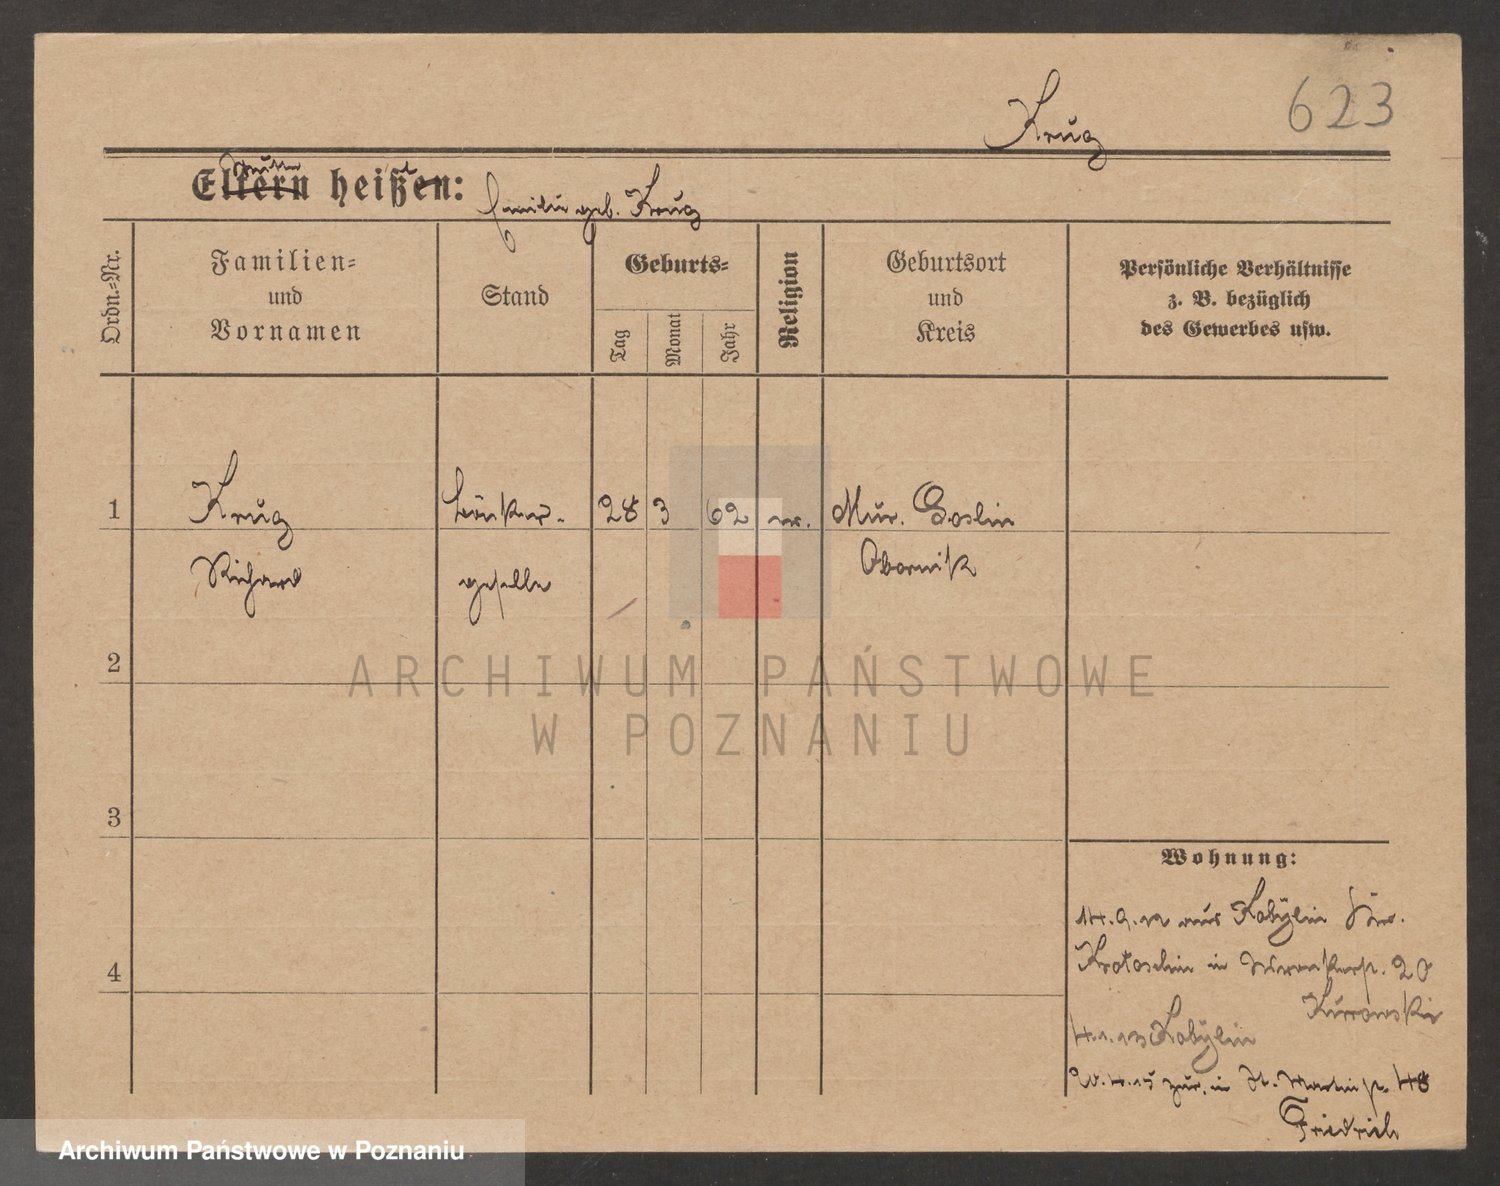 623
Krug
Eltern heißen:
Mutter
geb. Krug
Ordn.-Nr.
Familien-
und
Vornamen
Stand
Geburts-
Tag
Monat
Jahr
Religion
Geburtsort
und
Kreis
Persönliche Verhältnisse
z. B. bezüglich
des Gewerbes usw.
1
Krug
28 3 62
Mur. Goslin
Richard
geselle
Obornik
2
ARCHIWUM PAŃSTWOWE
W POZNANIU
3
Wohnung:
14.9.12 aus Kobylin Kr.
4
Krotoschin in 20
Kurrowski
4.1.13 Kobylin
20.4.15 zur. in St. Martinstr. 48
Friedrich
Archiwum Państwowe w Poznaniu